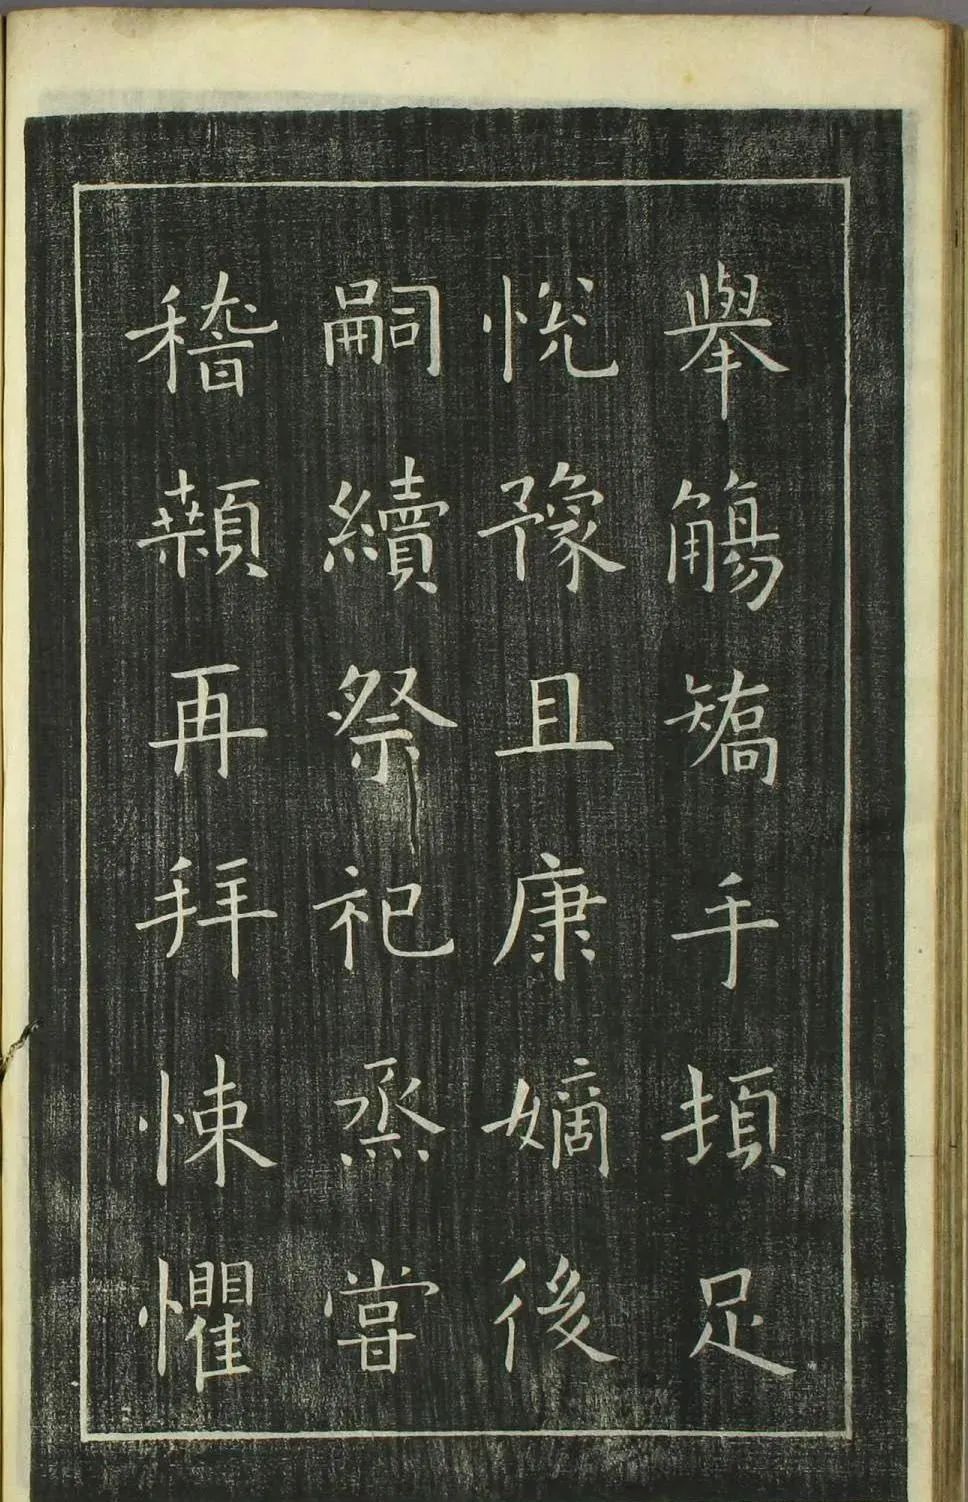 舉觴矯手頓足
悅豫且康嫡後
嗣續祭祀烝甞
稽顙再拜悚懼